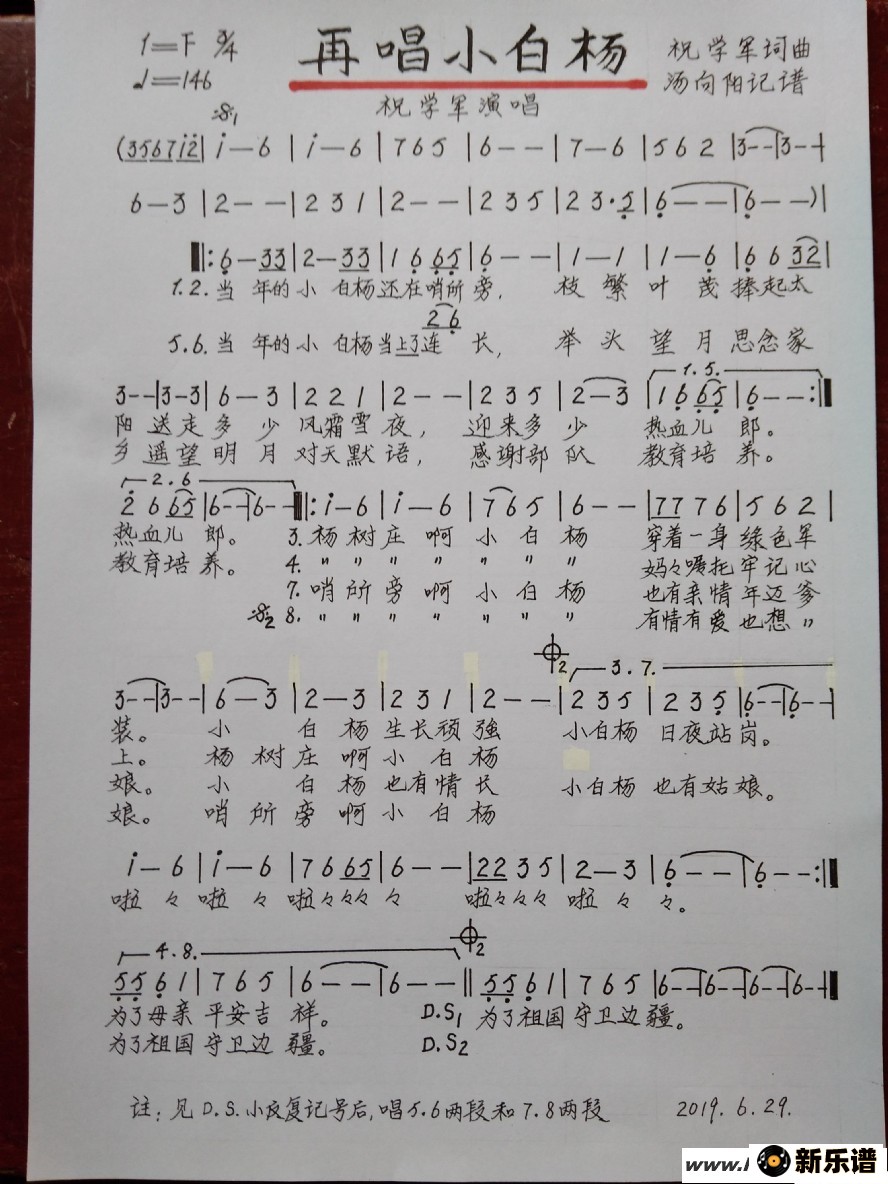 1=F 3/4
♩=146
再唱小白杨
祝学军词曲
汤向阳记谱
祝学军演唱
(356712|i—6|i—6|765|6--|7—6|562|3--|3--|
6—3|2--|231|2--|235|23·5|6--|6--)|
‖:6—33|2—33|1665|6--|1—1|1—6|6632|
1.2.当年的小白杨还在哨所旁,枝繁叶茂捧起太
26
5.6.当年的小白杨当上了连长,举头望月思念家
1.5.
3--|3-3|6—3|221|2--|235|2—3|1665|6--:‖
阳送走多少风霜雪夜,迎来多少热血儿郎。
乡遥望明月对天默语,感谢部队教育培养。
2.6
2665|6--|6--‖:i—6|i—6|765|6--|7776|562|
热血儿郎。3.杨树庄啊小白杨穿着一身绿色军
教育培养。4.〃〃〃〃〃〃〃妈々嘱托牢记心
7.哨所旁啊小白杨也有亲情年迈爹
8.〃〃〃〃〃〃〃有情有爱也想〃
2 3.7.
3--|3--|6—3|2—3|231|2--|235|235|6--|6--|
装。小白杨生长顽強小白杨日夜站岗。
上。杨树庄啊小白杨
娘。小白杨也有情长小白杨也有姑娘。
娘。哨所旁啊小白杨
i—6|i—6|7665|6--|2235|2—3|6--|6--:‖
啦々啦々啦々々々々啦々々々啦々々。
4.8. 2
5561|765|6--|6--‖5561|765|6--|6--|6--|6--‖
为了母亲平安吉祥。D.S1 为了祖国守卫边疆。
为了祖国守卫边疆。D.S2
注:见D.S.小反复记号后,唱5.6两段和7.8两段 2019.6.29.
www.
新乐谱